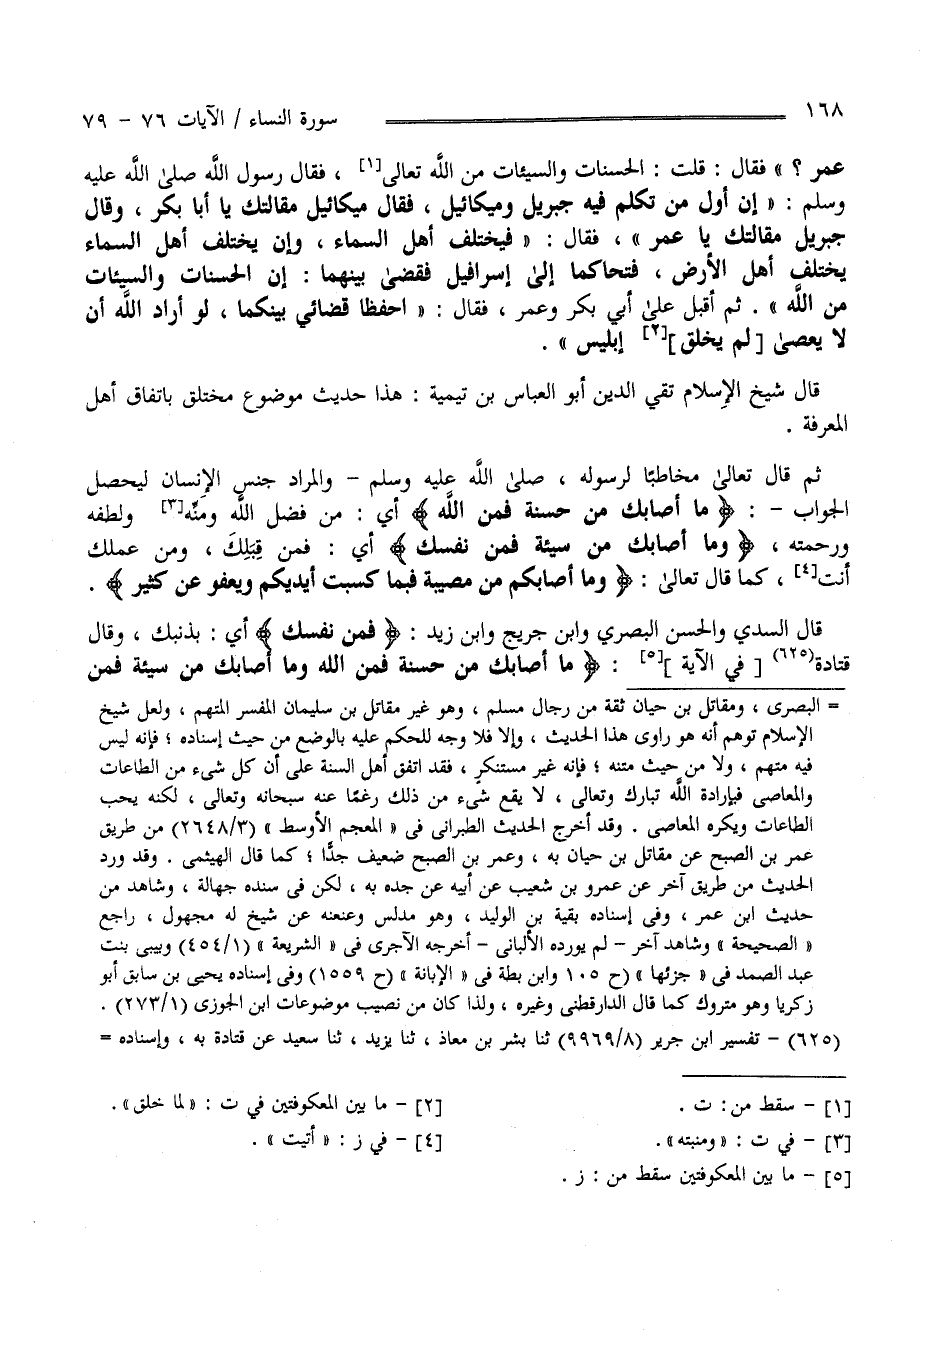 ١٦٨ سورة النساء / الآيات ٧٦ - ٧٩
عمر ؟ » فقال : قلت : الحسنات والسيئات من اللَّه تعالى[١] ، فقال رسول اللَّه صلى اللَّه عليه
وسلم : « إن أول من تكلم فيه جبريل وميكائيل ، فقال ميكائيل مقالتك يا أبا بكر ، وقال
جبريل مقالتك يا عمر » ، فقال : « فيختلف أهل السماء ، وإن يختلف أهل السماء
يختلف أهل الأرض ، فتحاكما إلى إسرافيل فقضى بينهما : إن الحسنات والسيئات
من اللَّه » . ثم أقبل على أبي بكر وعمر ، فقال : « احفظا قضائي بينكما ، لو أراد اللَّه أن
لا يعصى [ لم يخلق ][٢] إبليس » .
قال شيخ الإسلام تقي الدين أبو العباس بن تيمية : هذا حديث موضوع مختلق باتفاق أهل
المعرفة .
ثم قال تعالى مخاطبًا لرسوله ، صلى اللَّه عليه وسلم - والمراد جنس الإنسان ليحصل
الجواب - : ﴿ ما أصابك من حسنة فمن اللَّه ﴾ أي : من فضل اللَّه ومنّه[٣] ولطفه
ورحمته ، ﴿ وما أصابك من سيئة فمن نفسك ﴾ أي : فمن قِبَلِكَ ، ومن عملك
أنت[٤] ، كما قال تعالى : ﴿ وما أصابكم من مصيبة فبما كسبت أيديكم ويعفو عن كثير ﴾ .
قال السدي والحسن البصري وابن جريج وابن زيد : ﴿ فمن نفسك ﴾ أي : بذنبك ، وقال
قتادة(٦٢٥) [ في الآية ][٥] : ﴿ ما أصابك من حسنة فمن الله وما أصابك من سيئة فمن
= البصرى ، ومقاتل بن حيان ثقة من رجال مسلم ، وهو غير مقاتل بن سليمان المفسر المتهم ، ولعل شيخ
الإسلام توهم أنه هو راوى هذا الحديث ، وإلا فلا وجه للحكم عليه بالوضع من حيث إسناده ؛ فإنه ليس
فيه متهم ، ولا من حيث متنه ؛ فإنه غير مستنكر ، فقد اتفق أهل السنة على أن كل شىء من الطاعات
والمعاصى فبإرادة اللَّه تبارك وتعالى ، لا يقع شىء من ذلك رغمًا عنه سبحانه وتعالى ، لكنه يحب
الطاعات ويكره المعاصى . وقد أخرج الحديث الطبرانى فى « المعجم الأوسط » (٢٦٤٨/٣) من طريق
عمر بن الصبح عن مقاتل بن حيان به ، وعمر بن الصبح ضعيف جدًّا ؛ كما قال الهيثمى . وقد ورد
الحديث من طريق آخر عن عمرو بن شعيب عن أبيه عن جده به ، لكن فى سنده جهالة ، وشاهد من
حديث ابن عمر ، وفى إسناده بقية بن الوليد ، وهو مدلس وعنعنه عن شيخ له مجهول ، راجع
« الصحيحة » وشاهد آخر - لم يورده الألبانى - أخرجه الآجرى فى « الشريعة » (٤٥٤/١) وبيبى بنت
عبد الصمد فى « جزئها » (ح ١٠٥ وابن بطة فى « الإبانة » (ح ١٥٥٩) وفى إسناده يحيى بن سابق أبو
زكريا وهو متروك كما قال الدارقطنى وغيره ، ولذا كان من نصيب موضوعات ابن الجوزى (٢٧٣/١) .
(٦٢٥) - تفسير ابن جرير (٩٩٦٩/٨) ثنا بشر بن معاذ ، ثنا يزيد ، ثنا سعيد عن قتادة به ، وإسناده =
[١] - سقط من: ت . [٢] - ما بين المعكوفتين في ت : «لما خلق» .
[٣] - في ت : «ومنبته» . [٤] - في ز : « أتيت » .
[٥] - ما بين المعكوفتين سقط من : ز .